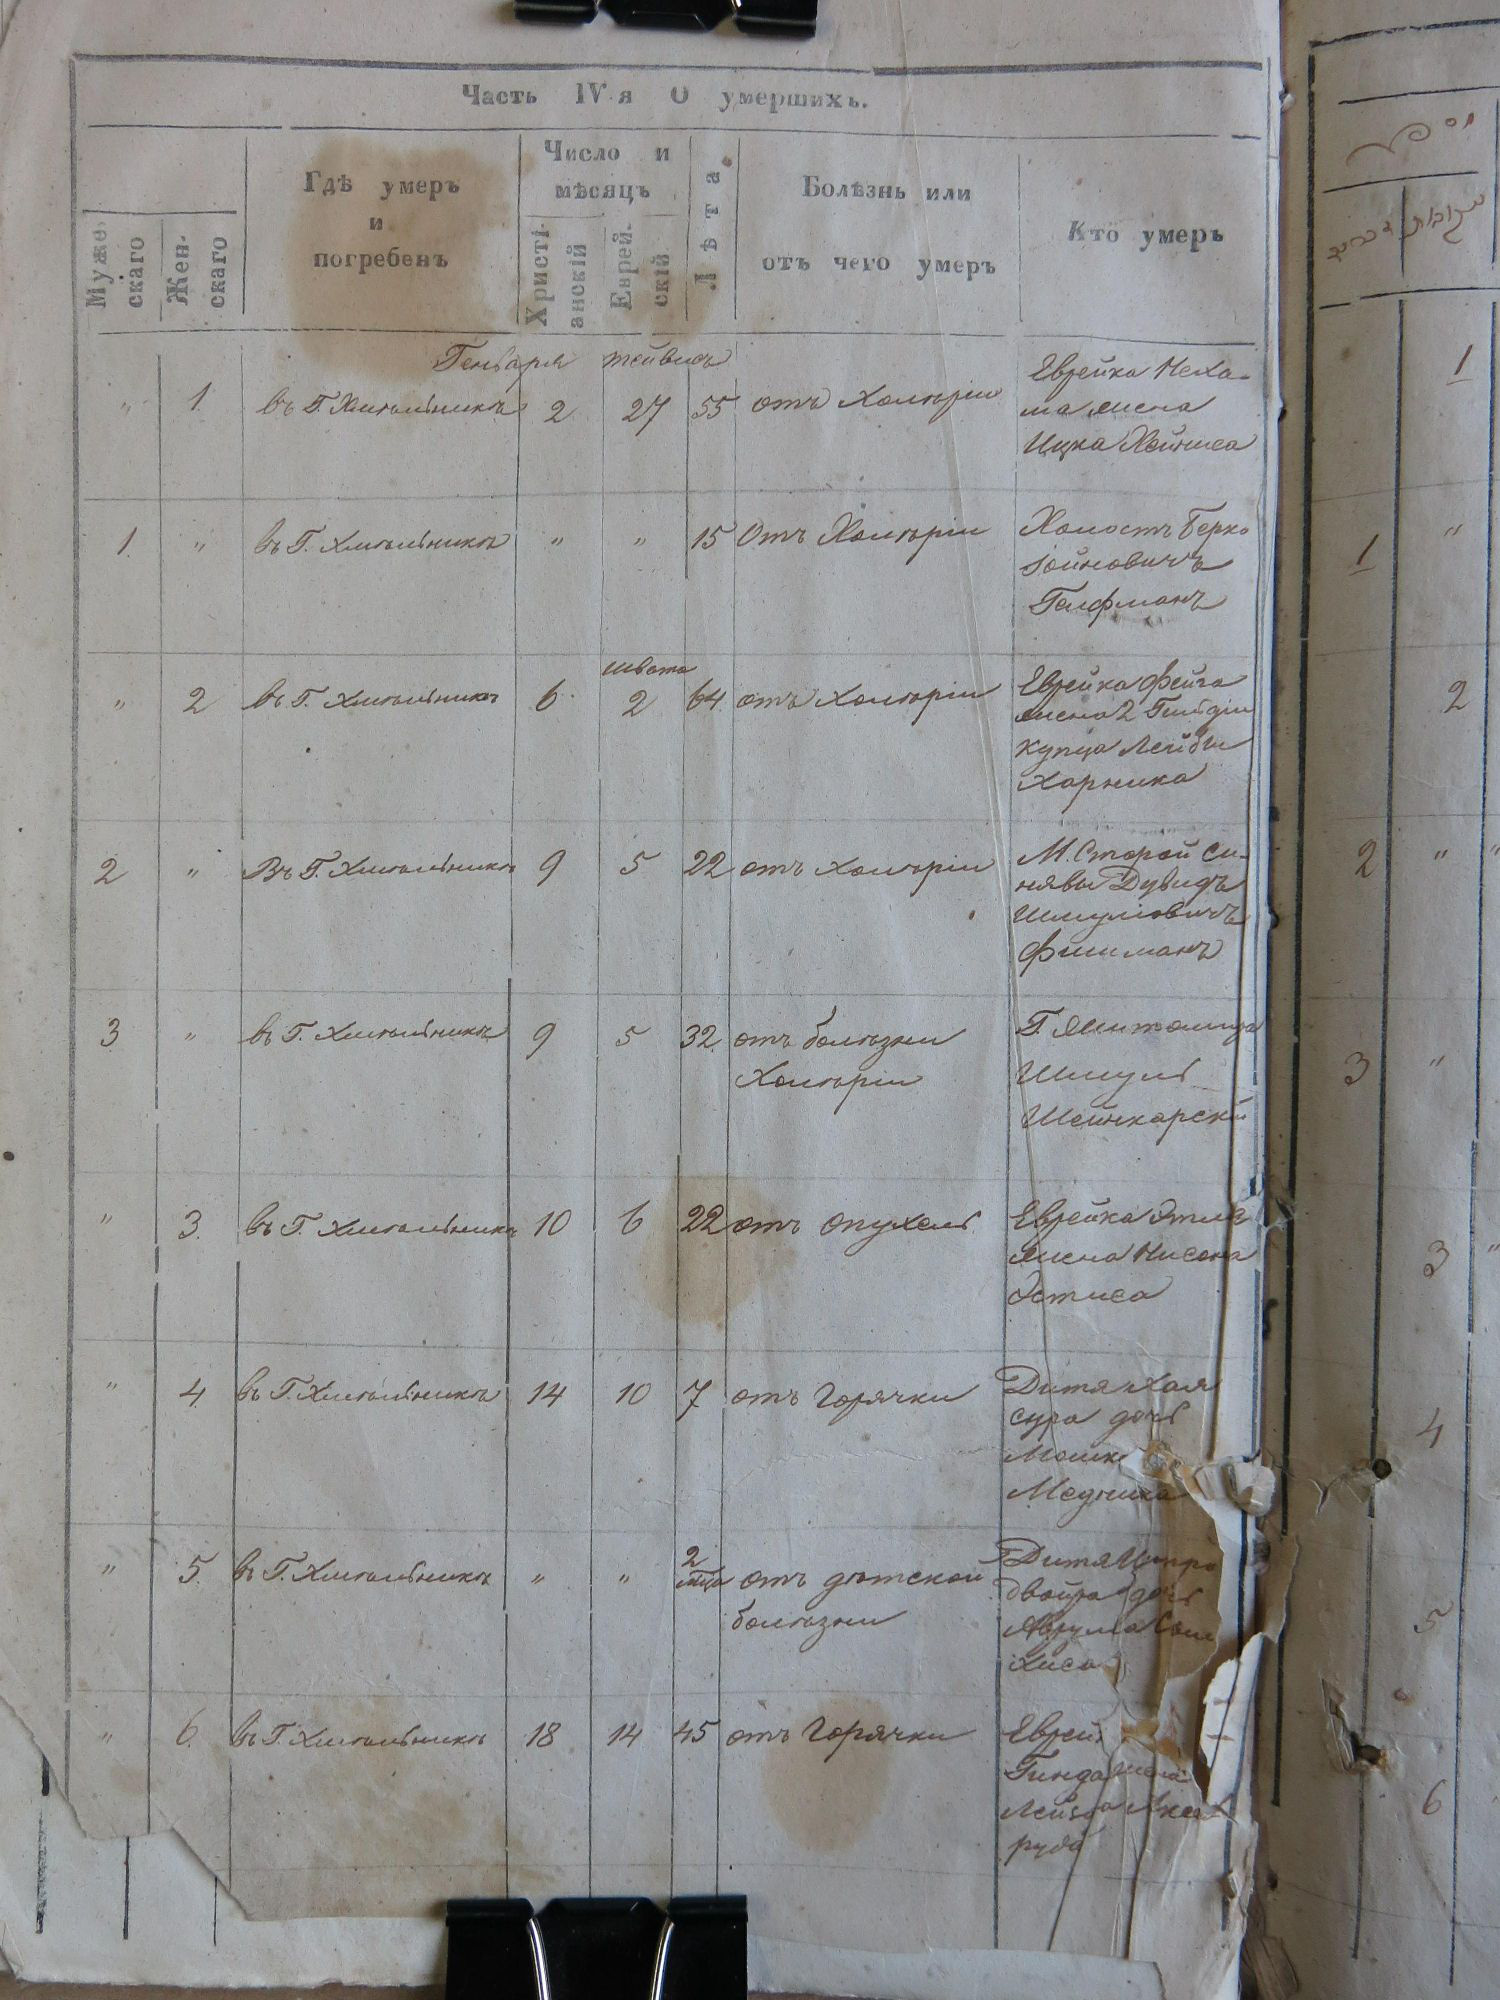 Часть IV-я О умершихъ.
Мужескаго
Женскаго
Гдѣ умеръ
и
погребенъ
Число и
мѣсяцъ
Христіанскій
Еврейскій
Лѣта.
Болѣзнь или
отъ чего умеръ
Кто умеръ
Генваря тейвисъ
" 1. въ Г. Хмѣльникѣ 2 27 55 отъ Холѣріи Еврейка Неха-
ма жена
Ицка Хейниса
1. " въ Г. Хмѣльникѣ " " 15 Отъ Холѣріи Холостъ Берко
Іойновичъ
Гелфманъ
швата
" 2 въ Г. Хмѣльникѣ 6 2 64 отъ Холѣріи Еврейка Фейга
жена 2 Гильдіи
купца Лейбы
Харника
2 " Въ Г. Хмѣльникѣ 9 5 22 отъ Холѣріи М. Старой Си-
нявы Дувидъ
Шмуліовичъ
Фишманъ
3 " въ Г. Хмѣльникѣ 9 5 32 отъ болѣзни
Холѣріи
Г. Житомира
Шмуль
Шейнкарскій
" 3. въ Г. Хмѣльникѣ 10 6 22 отъ опухель Еврейка Этля
жена Нисона
Эстиса
" 4 въ Г. Хмѣльникѣ 14 10 7 отъ Горячки Дитя Хая
Сура дочь
Мошк
Медника
" 5. въ Г. Хмѣльникѣ " " 2
мца отъ дѣтской
болѣзни
Дитя Ципра
Двойра дочь
Аврума
" 6. въ Г. Хмѣльникѣ 18 14 45 отъ Горячки Еврей
Гинда жена
Лейзора
1
1 "
2
2 "
3 "
3 "
4
5
6